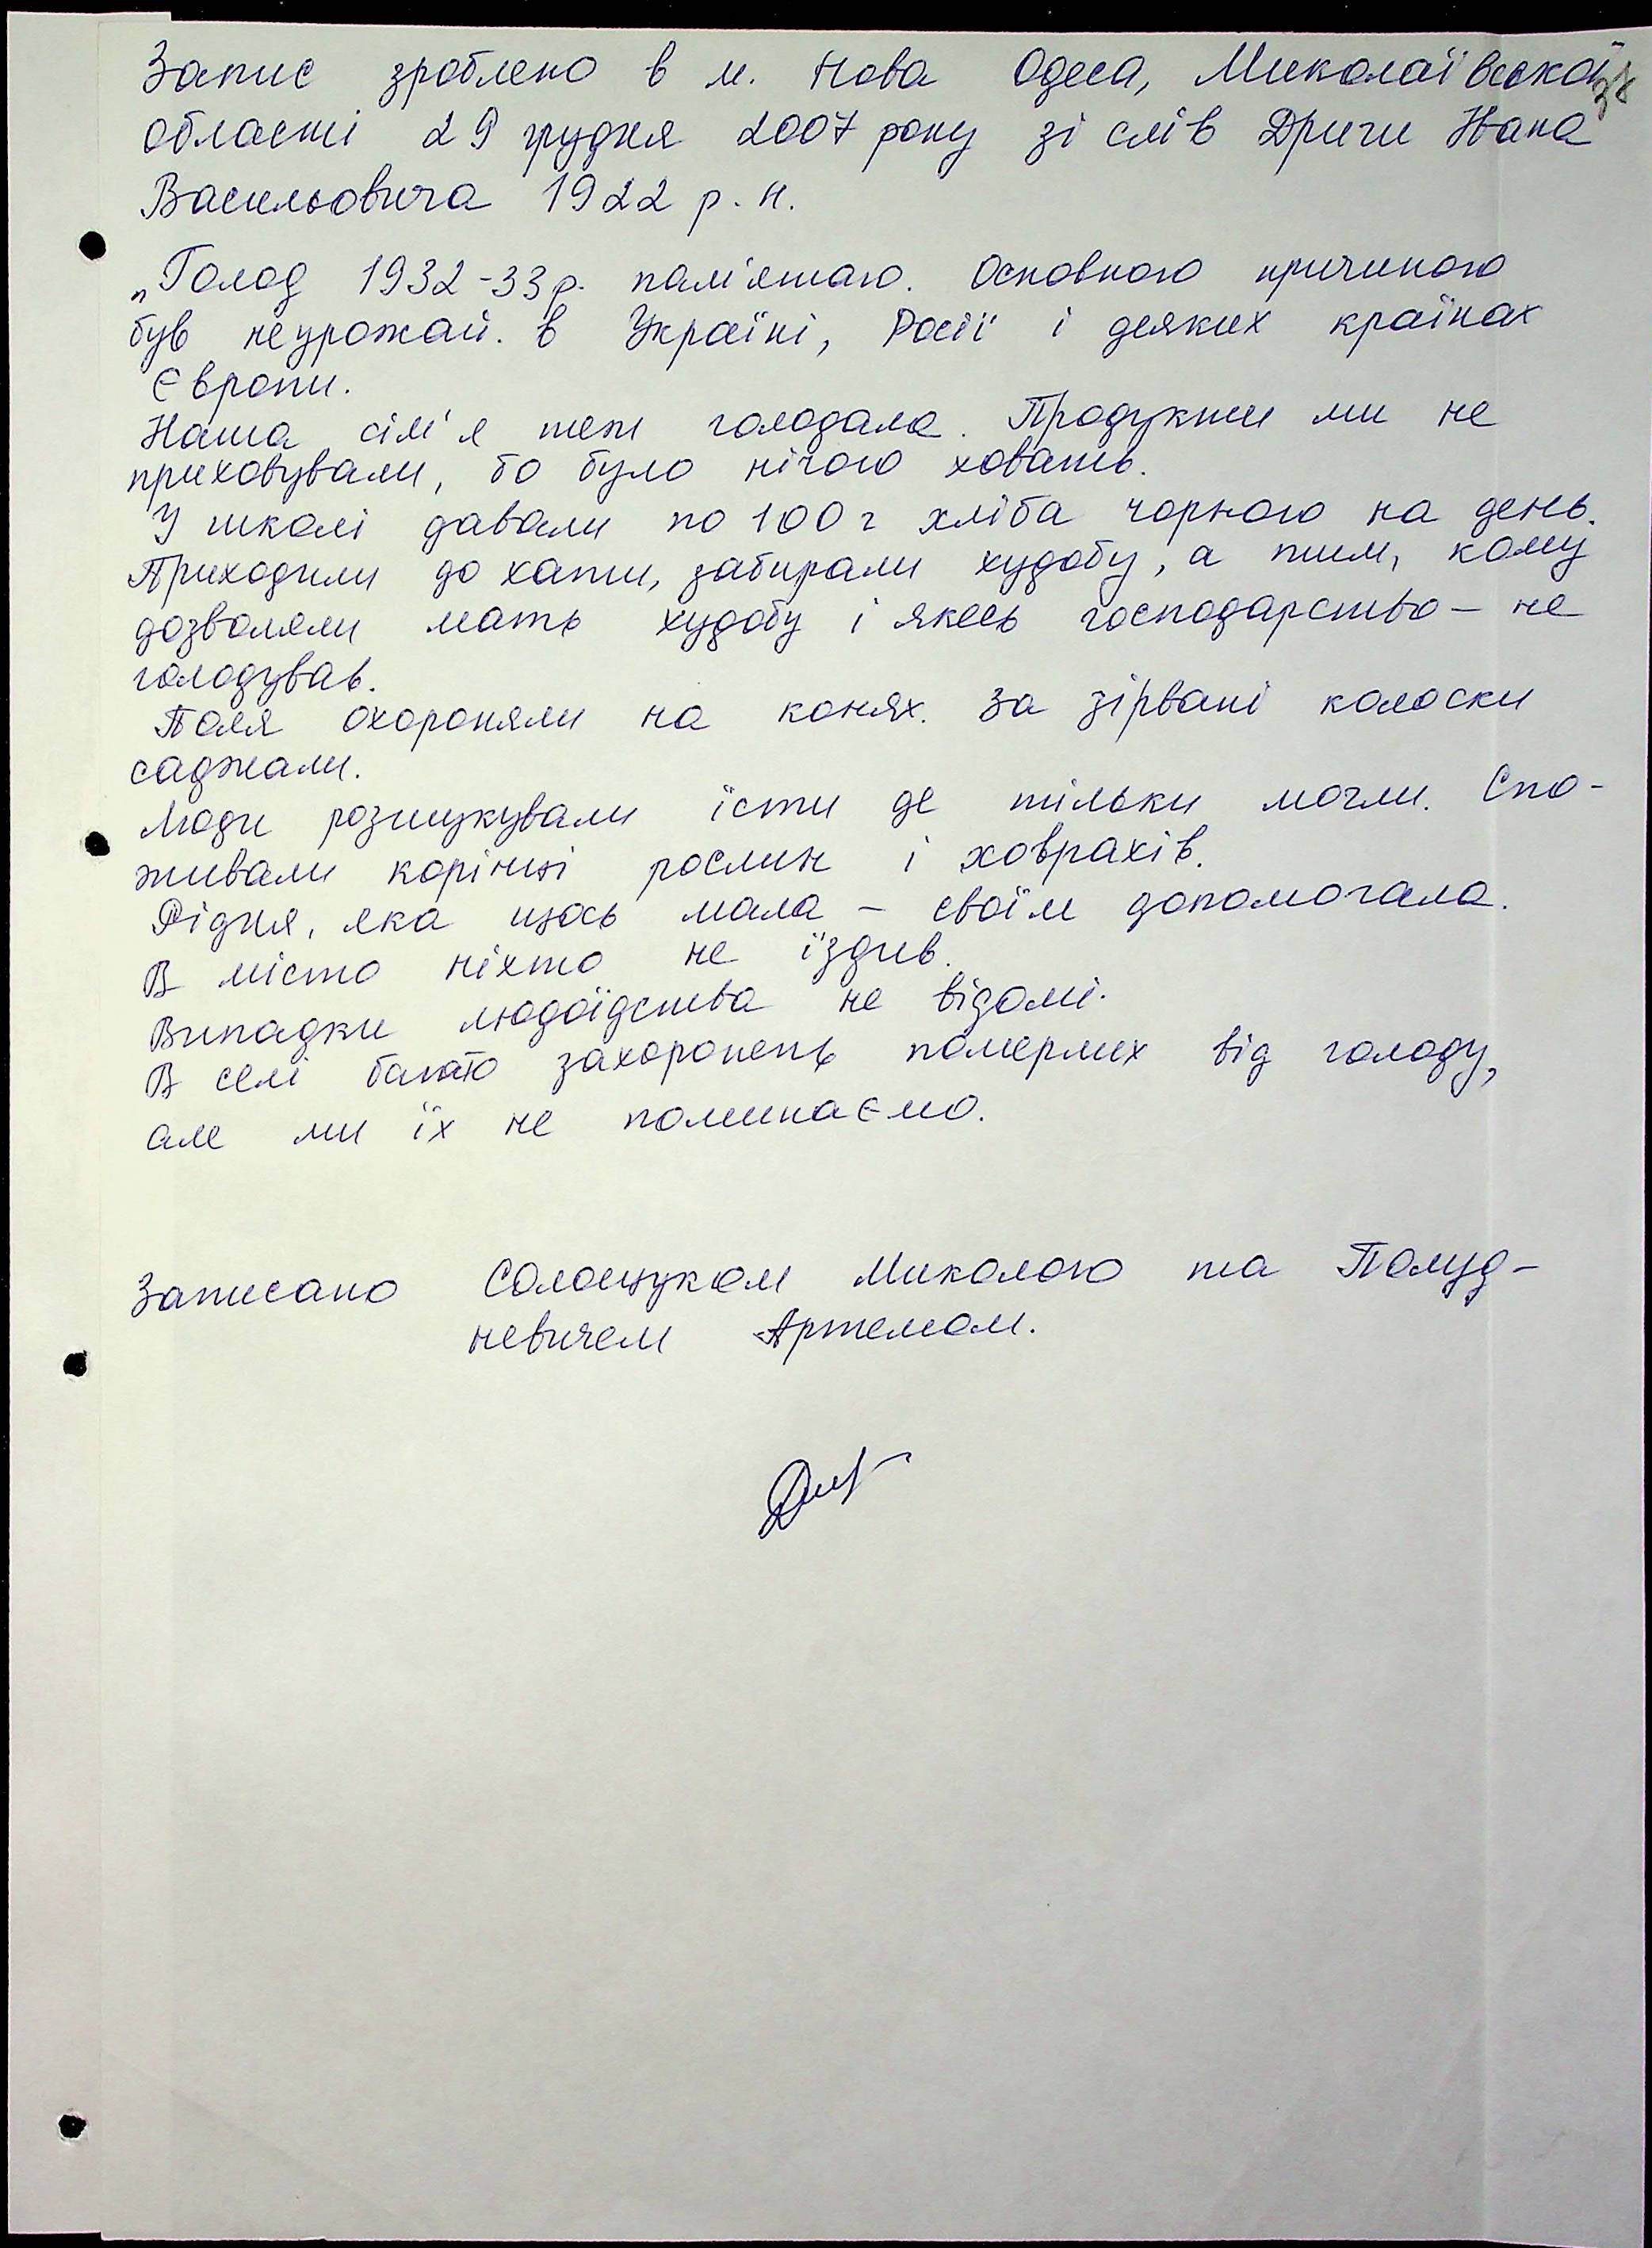 Запис зроблено в м. Нова Одеса, Миколаївської 38
області 29 грудня 2007 року зі слів Дриги Івана
Васильовича 1922 р. н.
„Голод 1932-33 р. пам'ятаю. Основною причиною
був неурожай. в Україні, Росії і деяких країнах
Європи.
Наша сім'я теж голодала. Продукти ми не
приховували, бо було нічого ховать.
У школі давали по 100 г хліба чорного на день.
Приходили до хати, забирали худобу, а тим, кому
дозволяли мать худобу і якесь господарство – не
голодував.
Поля охороняли на конях. За зірвані колоски
саджали.
Люди розшукували їсти де тільки могли. Спо-
живали корінці рослин і ховрахів.
Рідня, яка щось мала – своїм допомогала.
В місто ніхто не їздив.
Випадки людоїдства не відомі.
В селі багато захоронень померлих від голоду,
але ми їх не поминаємо.
Записано Солощуком Миколою та Полуд-
невичем Артемом.